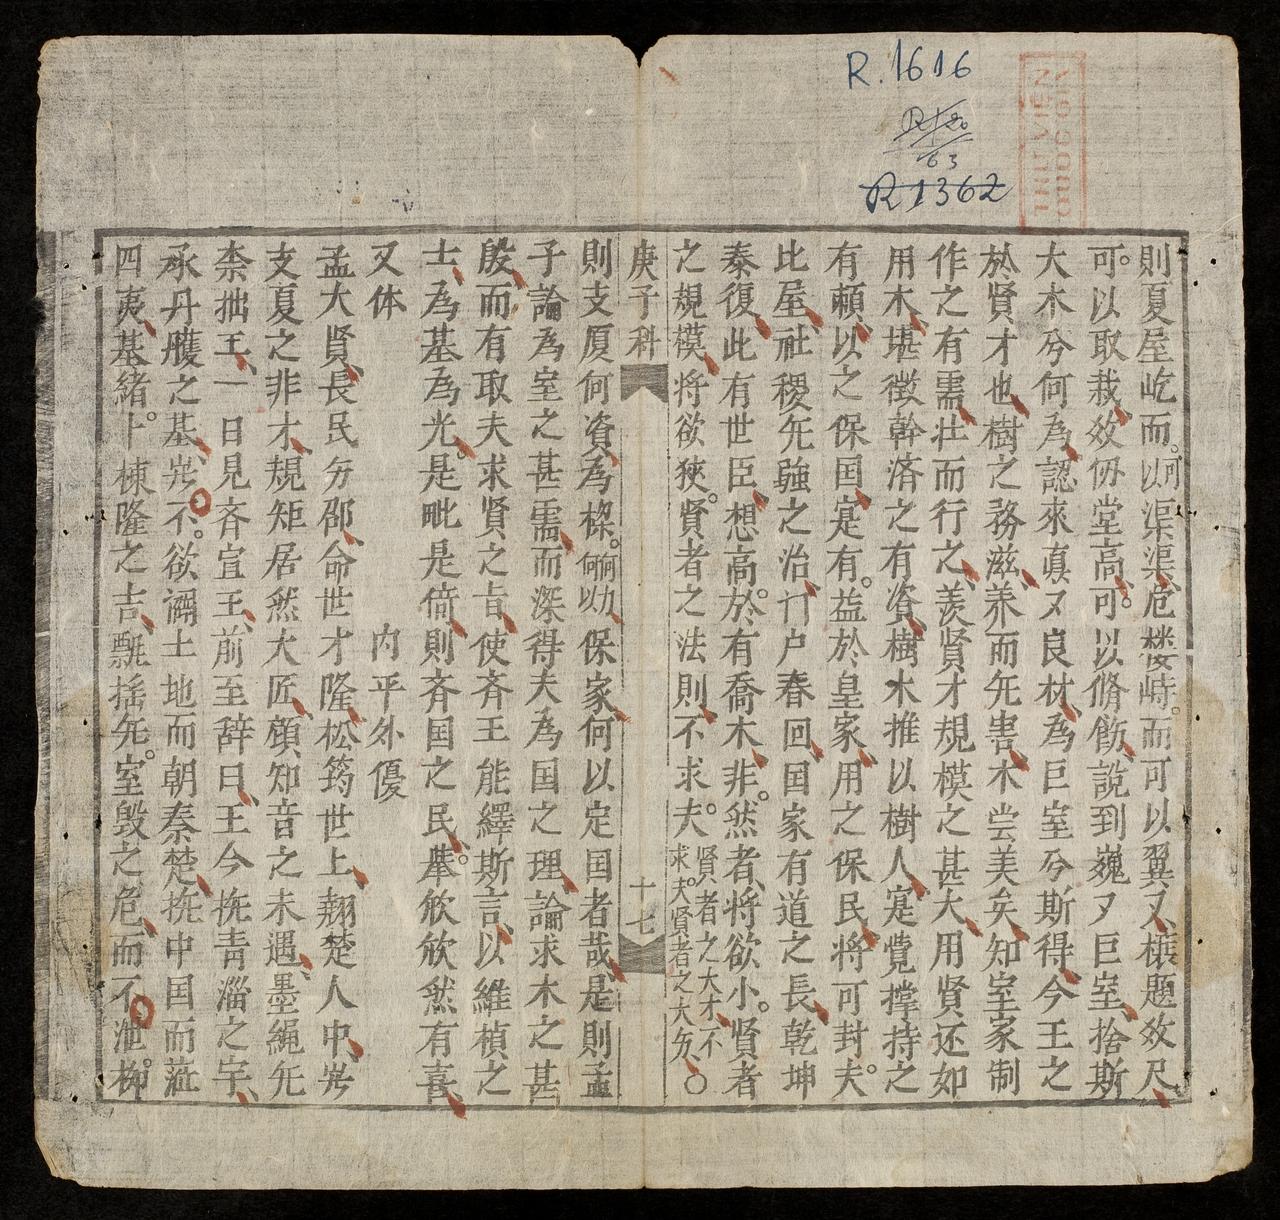 R.1616
R 1362
63
THƯ VIỆN
QUỐC GIA
則夏屋屹而何以渠渠危楼峙而可以翼又榱題效尺
可以取栽效仞堂高可以脩飭說到巍又巨室捨斯
大木兮何為認來真又良材為巨室兮斯得今王之
於賢才也樹之務滋养而旡害木尝美矣知室家制
作之有需壮而行之羡賢才規模之甚大用賢还如
用木堪徵幹济之有資樹木推以樹人寔覚撑持之
有頼以之保国寔有益於皇家用之保民将可封夫
比屋社稷旡強之治门户春回国家有道之長乾坤
秦復此有世臣想高於有喬木非然者将欲小賢者
之規模将欲狹賢者之法則不求夫賢者之大才不求夫賢者之大匁○
庚子科
十七
則支厦何資為樑何以保家何以定国者哉是則孟
子論為室之甚需而深得夫為国之理論求木之甚
殷而有取夫求賢之旨使斉王能繹斯言以維楨之
士為基為光是毗是倚則斉国之民羣欣欣然有喜
又体 内平外優
孟大賢長民匁邵命世才隆松筠世上翹楚人中岩
支夏之非才規矩居然大匠顧知音之未遇墨繩旡
柰拙王一日見斉宣王前至辞曰王今抚青淄之宇
承丹雘之基岩不欲闢土地而朝秦楚抚中国而蒞
四夷基緒十棟隆之吉飄揺旡室毁之危而不泄柳